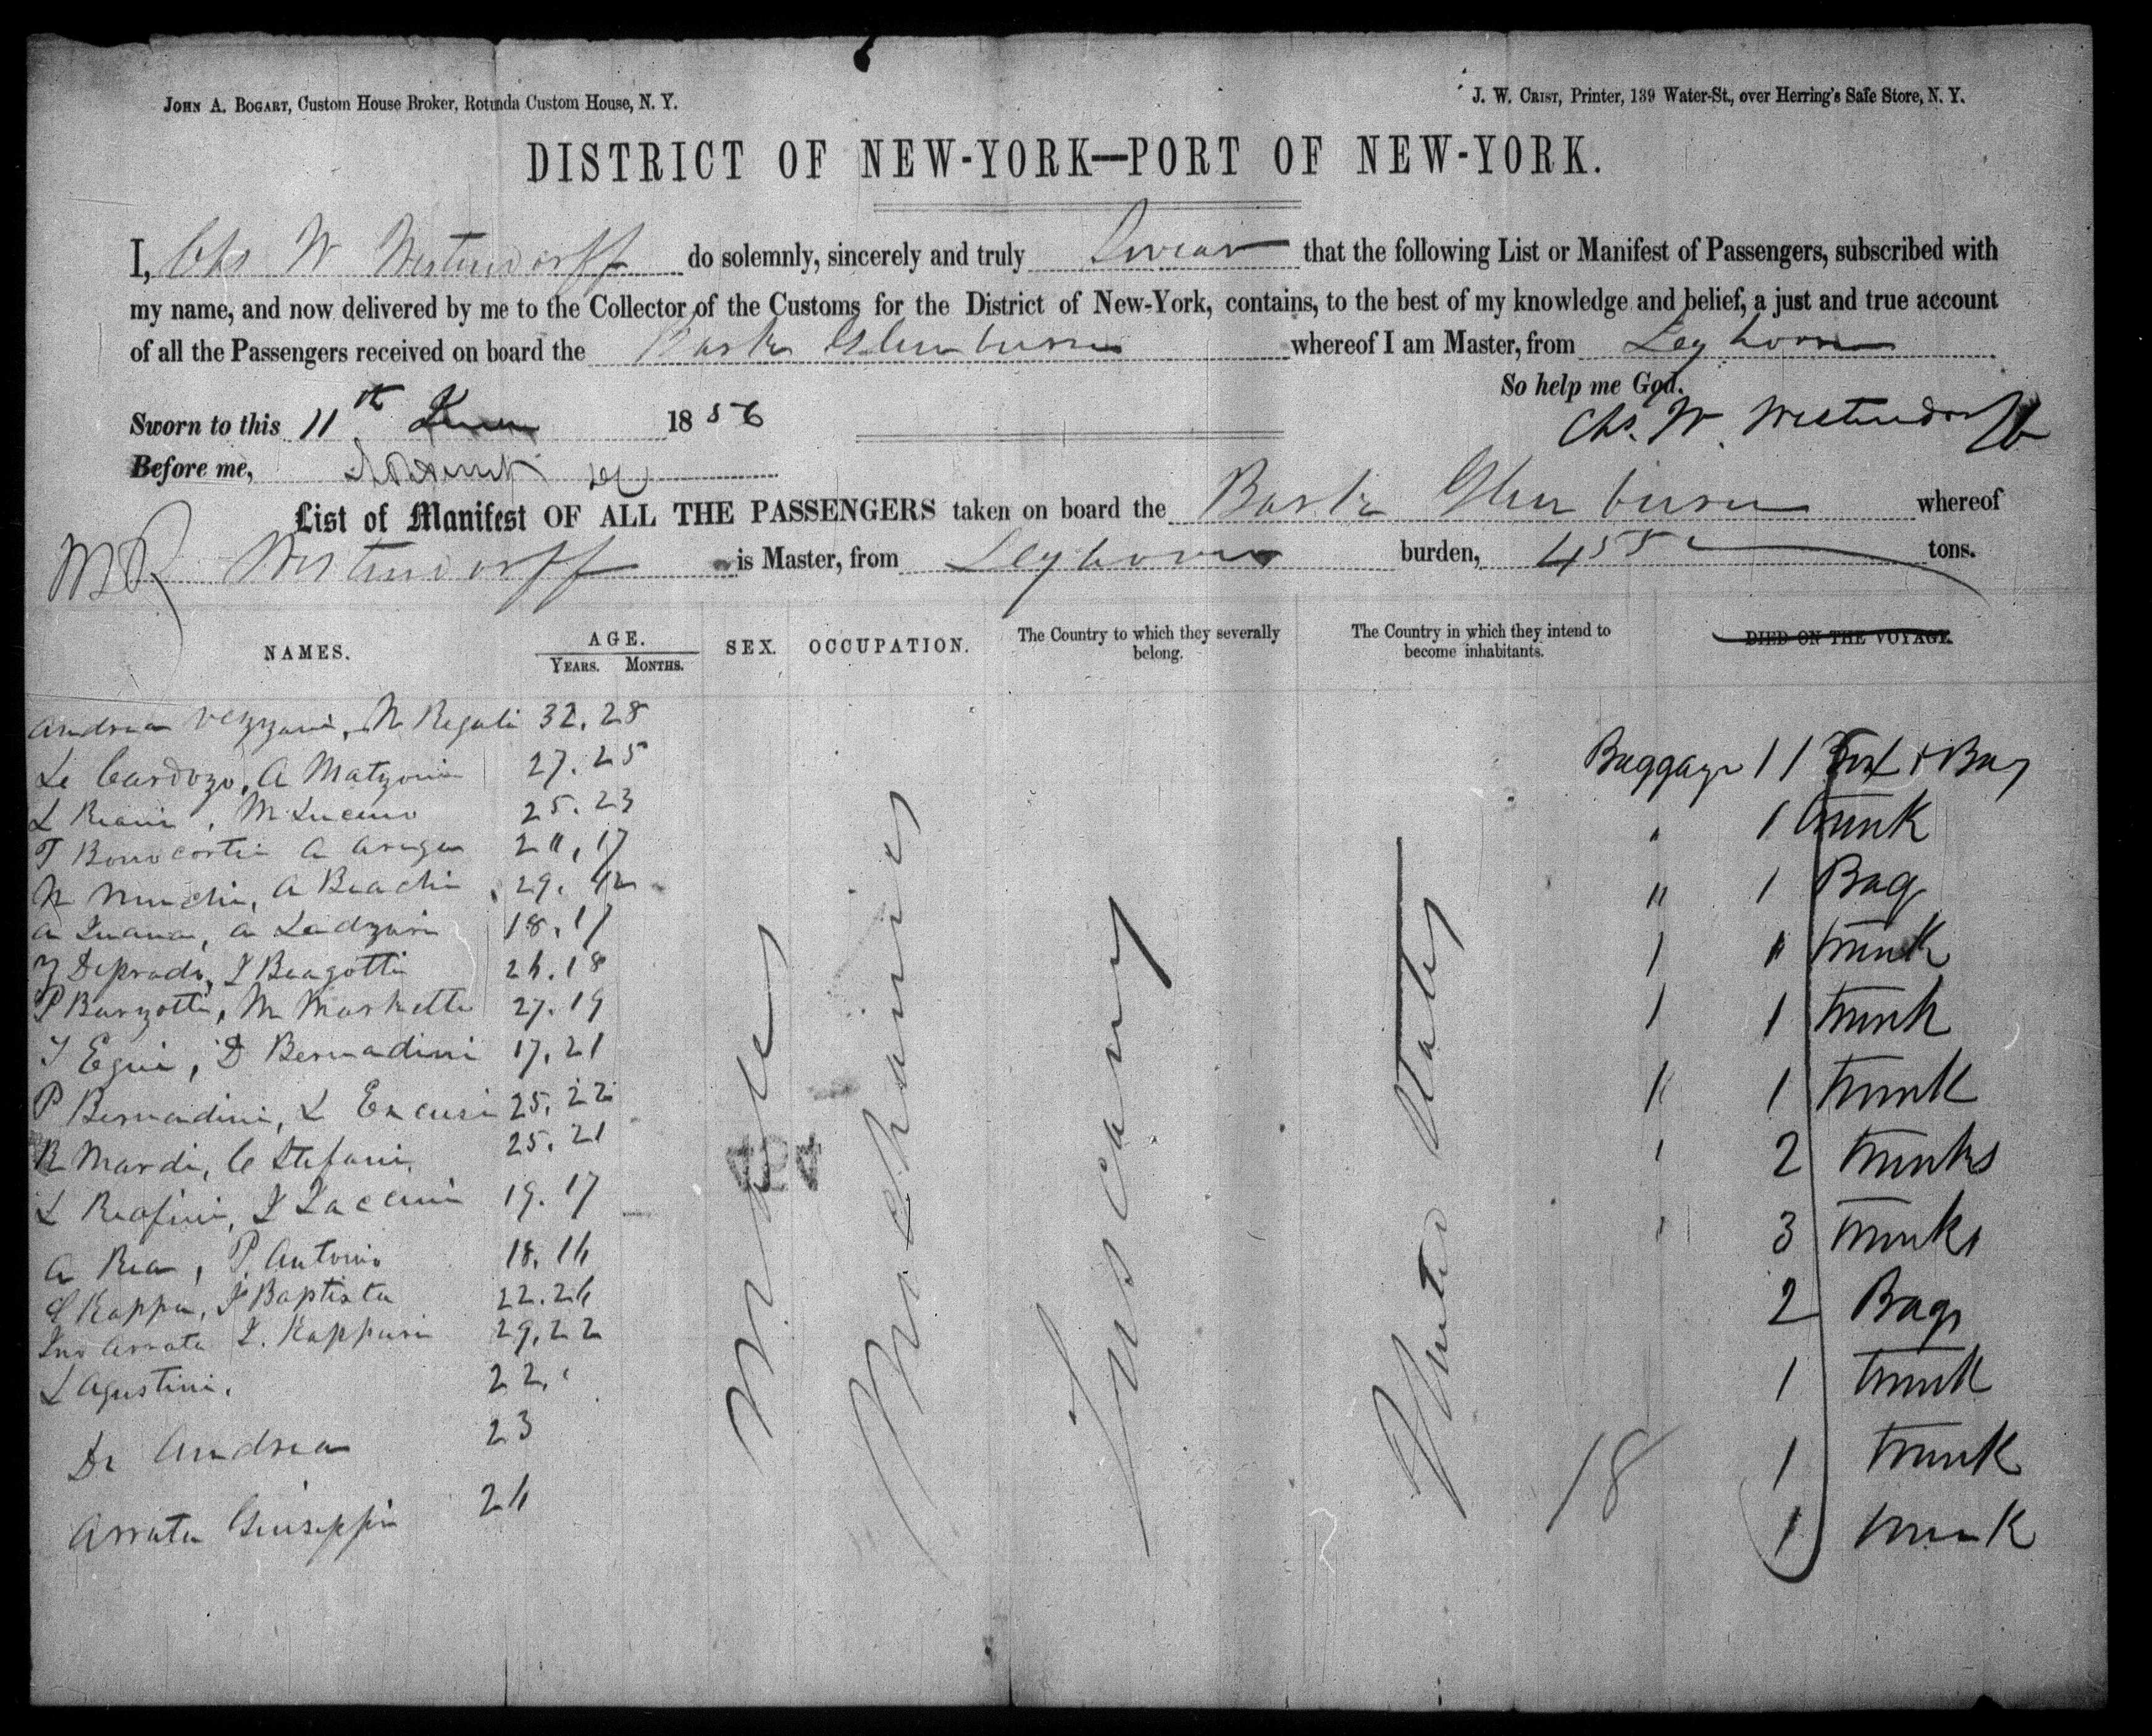 JOHN A. BOGART, Custom House Broker, Rotunda Custom House, N. Y.
J. W. CRIST, Printer, 139 Water-St., over Herring's Safe Store, N. Y.
DISTRICT OF NEW-YORK—PORT OF NEW-YORK.
I, Chs W Westendorff do solemnly, sincerely and truly Swear that the following List or Manifest of Passengers, subscribed with
my name, and now delivered by me to the Collector of the Customs for the District of New-York, contains, to the best of my knowledge and belief, a just and true account
of all the Passengers received on board the Bark Glenburn whereof I am Master, from Leghorn
So help me God.
Sworn to this 11th 1856
Chs. W. Westendorff
Before me,
List of Manifest OF ALL THE PASSENGERS taken on board the Bark Glenburn whereof
Westendorff is Master, from Leghorn burden, 455 tons.
NAMES. AGE. YEARS. MONTHS. SEX. OCCUPATION. The Country to which they severally belong. The Country in which they intend to become inhabitants. DIED ON THE VOYAGE.
Andrea Vezzani, N Regali 32. 28
Le Cardozo, A Matzoni 27. 25
L Riani, M Luceno 25. 23
T Bonocorti A 17
N A Biachi 29.
A A 18. 17
Deprado, Biagotti 18
P Barzotti, M Marketti 27. 19
Egui, D Bernadini 17. 21
P Bernadini, L 25. 22
R Mardi, C Stefani, 25. 21
L Riafini, 19. 17
A Rea, P Antonio 18.
Kappa, Baptista 22.
Arrata Kappari 29. 22
L Agustini. 22.
De Andrea 23
Arrata Giuseppi
Males
Mechanics
Tuscany
United States
Baggage 1 1 Box + Bag
" 1 trunk
" 1 Bag
trunk
1 trunk
1 trunk
2 trunks
3 trunks
2 Bags
1 trunk
1 trunk
1 trunk
18